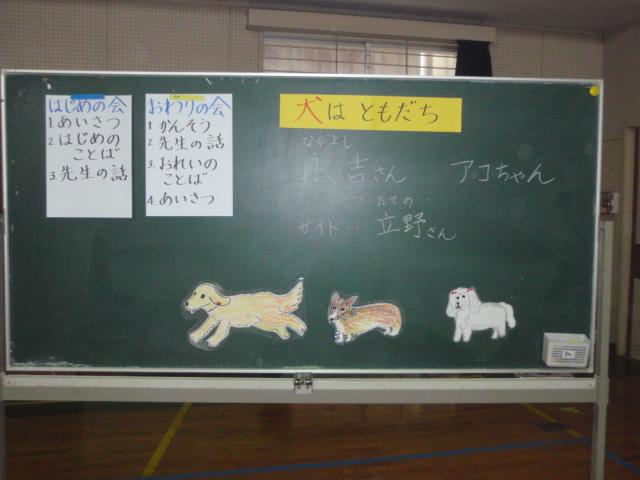 はじめの会
1. あいさつ
2 はじめの
ことば
3. 先生の話
おわりの会
1 かんそう
2. 先生の話
3. おれいの
ことば
4. あいさつ
犬は ともだち
ながよし
永吉さん アコちゃん
たての
ガイド… 立野さん